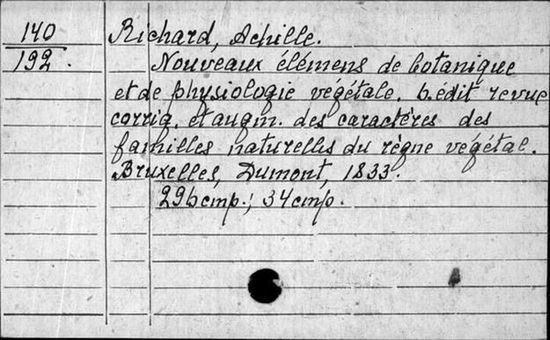 140
192.
Richard, Achille.
Nouveaux élémens de botanique
et de physiologie végétale. 6.édit revue
corrig. et augm. des caractères des
familles naturelles du règne végétal.
Bruxelles, Dumont, 1833.
296 стр.; 34 стр.